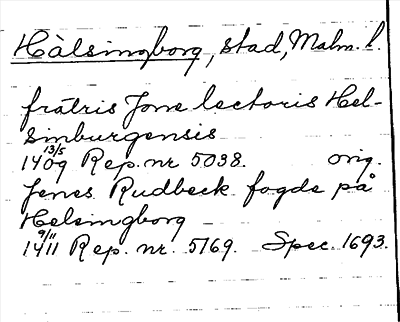 Hälsingborg, stad, Malm. l.
fratris Jone lectoris Hel-
sinburgensis
14 13/5 09 Rep. nr 5038. orig.
Jenes Rudbeck fogde på
Helsingborg
14 9/11 11 Rep. nr. 5169. Spec. 1693.